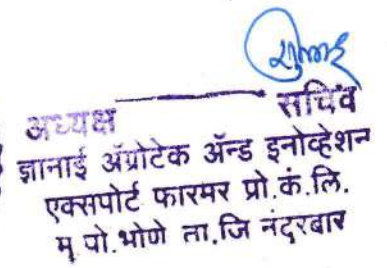 अध्यक्ष सचिव
ज्ञानाई ॲग्रोटेक ॲन्ड इनोव्हेशन
एक्सपोर्ट फारमर प्रो.कं.लि.
मु.पो.भोणे ता.जि नंदुरबार